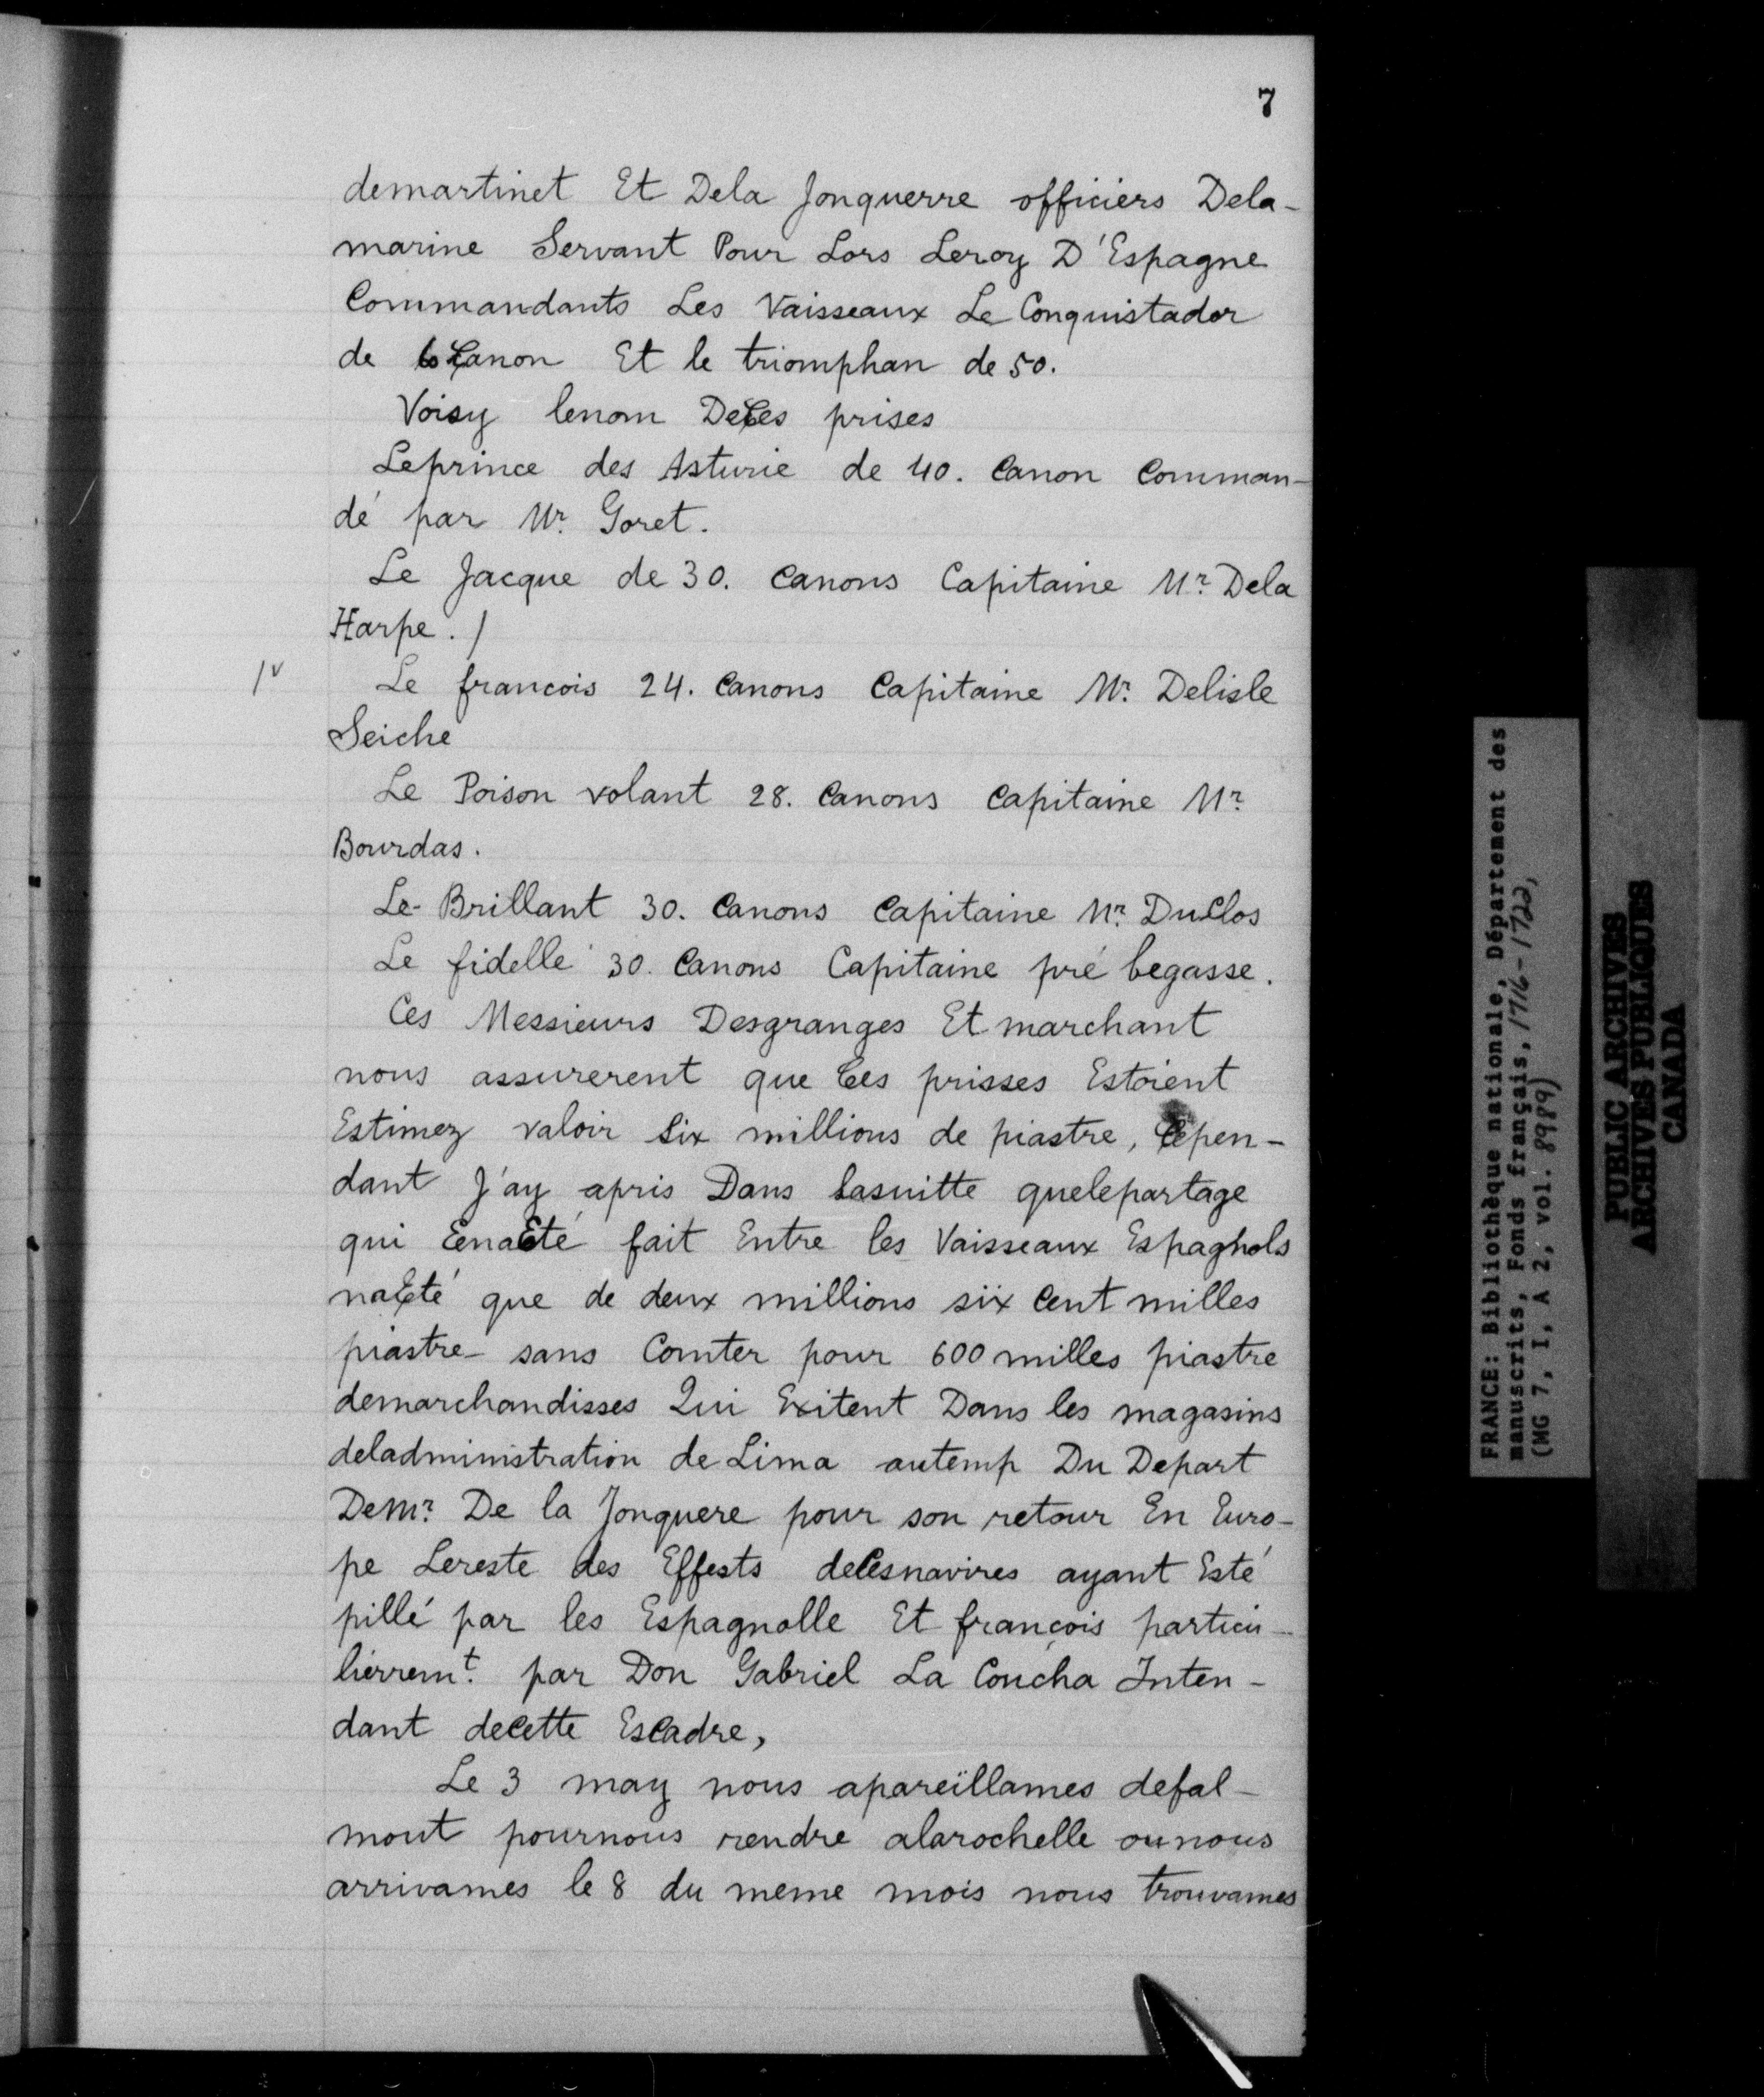 7
demartinet Et Dela Jonquerre officiers Dela-
marine Servant Pour Lors Leroy D'Espagne
Commandants Les Vaisseaux Le Conquistador
de Canon Et le triomphan de 50.
Voisy lenom DeCes prises
Leprince des Asturie de 40. Canon Comman-
dé par Mr. Goret.
Le Jacque de 30. Canons Capitaine Mr. Dela
Harpe. /
1v
Le francois 24. Canons Capitaine Mr. Delisle
Seiche
Le Poison volant 28. Canons Capitaine Mr.
Bourdas.
Le Brillant 30. Canons Capitaine Mr. DuClos
Le fidelle 30. Canons Capitaine pré begasse.
Ces Messieurs Desgranges Et marchant
nous assurerent que Ces prisses Estoient
Estimez valoir Six millions de piastre, Cepen-
dant J'ay apris Dans lasuitte quelepartage
qui EenaEté fait Entre les Vaisseaux Espagnols
naEté que de deux millions six Cent milles
piastre sans Comter pour 600 milles piastre
demarchandisses Qui Exitent Dans les magasins
deladministration de Lima autemp Du Depart
DeMr. De la Jonquere pour son retour En Euro-
pe Lereste des Effests deCesnavires ayant Esté
pillé par les Espagnolle Et françois particu-
lierremt. par Don Gabriel La Concha Inten-
dant deCette EsCadre,
Le 3 may nous apareïllames defal-
mout pournous rendre alarochelle ounous
arrivames le 8 du meme mois nous trouvames
FRANCE: Bibliothèque nationale, Département des
manuscrits, Fonds français, 1716-1722,
(MG 7, I, A 2, vol. 8989)
PUBLIC ARCHIVES
ARCHIVES PUBLIQUES
CANADA